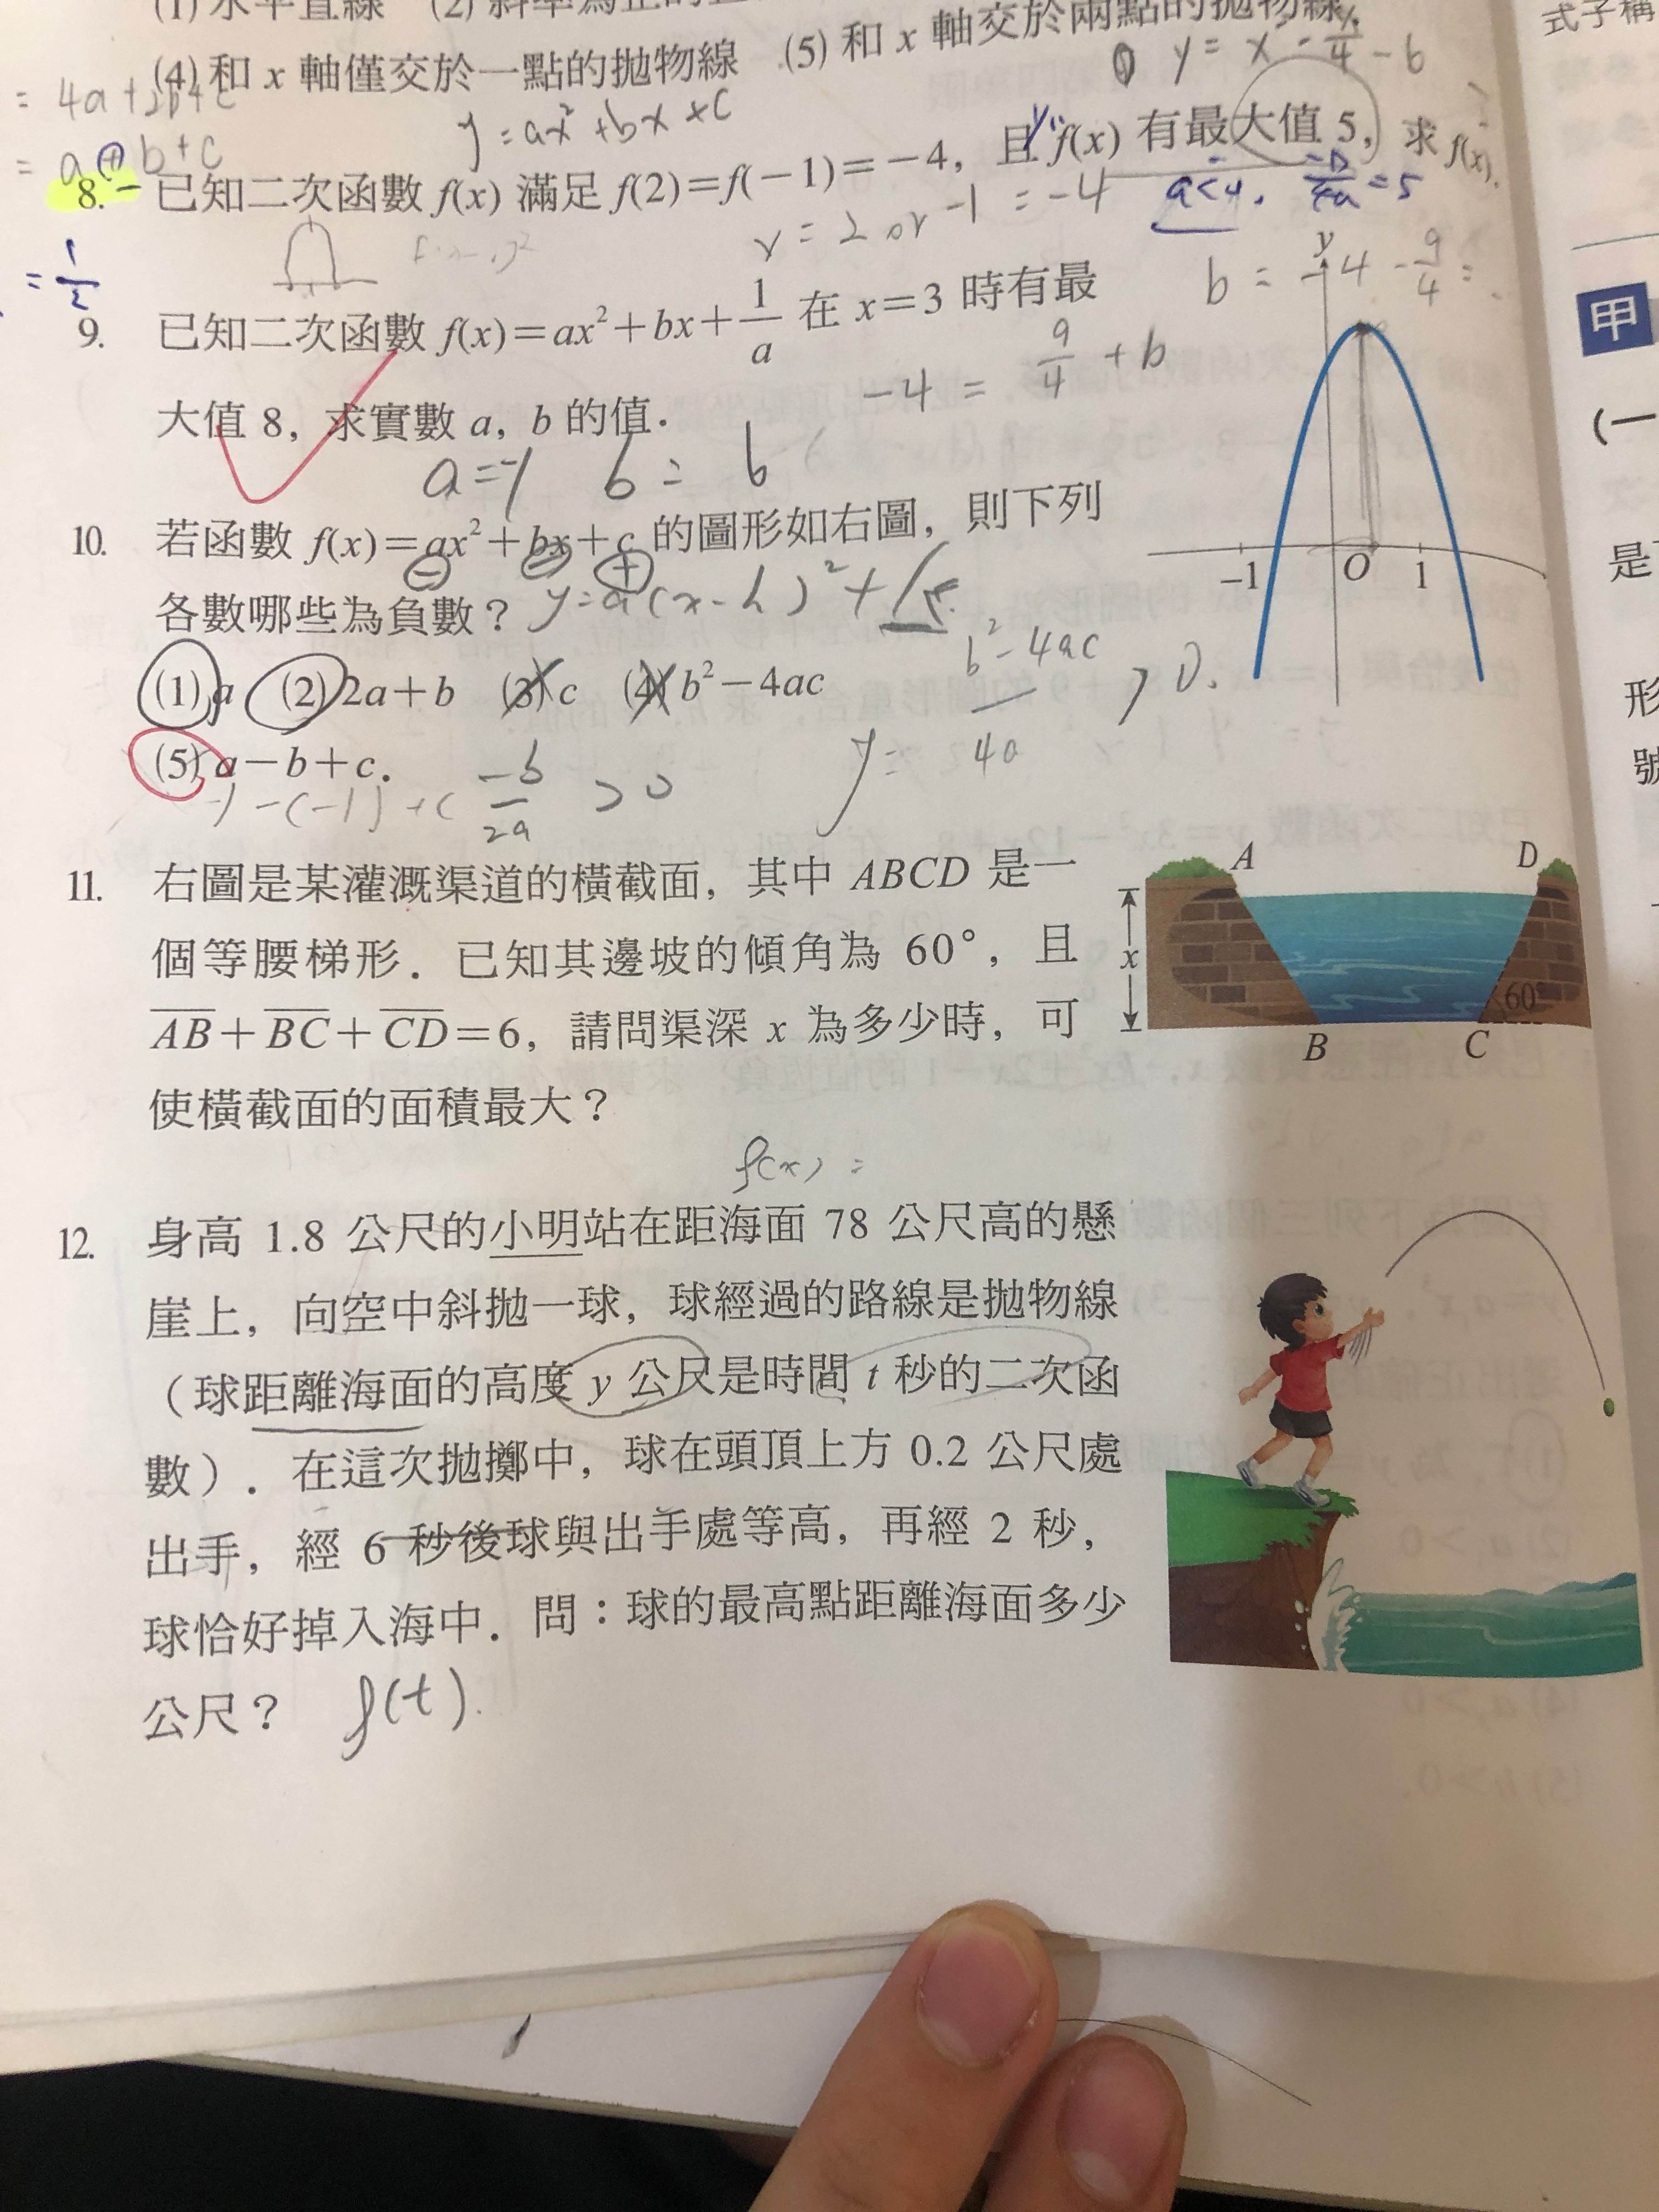 (1) 水平直線 (2) 斜率為正的
(4) 和 x 軸僅交於一點的拋物線 (5) 和 x 軸交於兩點的拋物線.
式子稱
= 4a+2b+c
y=ax²+bx+c
= a b+c
8. 已知二次函數 f(x) 滿足 f(2)=f(−1)=−4, 且 f(x) 有最大值 5, 求 f(x).
y = 2 or -1 = -4
= 1/2
b = -4 - 9/4 =
9. 已知二次函數 f(x)=ax²+bx+1/a 在 x=3 時有最
大值 8, 求實數 a, b 的值.
-4 = 9/4 + b
a=-1 b = 6
10. 若函數 f(x)=ax²+bx+c 的圖形如右圖, 則下列
− − +
各數哪些為負數？ y=a(x-h)²+k
(1) a (2) 2a+b (3) c (4) b²−4ac
(5) a−b+c.
b²-4ac
4a
> 0.
y=
-1-(-1)+c
-b/2a > 0
y
−1 O 1
甲
(一
是
形
號
11. 右圖是某灌溉渠道的橫截面, 其中 ABCD 是一
個等腰梯形. 已知其邊坡的傾角為 60°, 且
AB+BC+CD=6, 請問渠深 x 為多少時, 可
使橫截面的面積最大？
A D
x
60°
B C
f(x) =
12. 身高 1.8 公尺的小明站在距海面 78 公尺高的懸
崖上, 向空中斜拋一球, 球經過的路線是拋物線
（球距離海面的高度 y 公尺是時間 t 秒的二次函
數）. 在這次拋擲中, 球在頭頂上方 0.2 公尺處
出手, 經 6 秒後球與出手處等高, 再經 2 秒,
球恰好掉入海中. 問：球的最高點距離海面多少
公尺？ f(t).